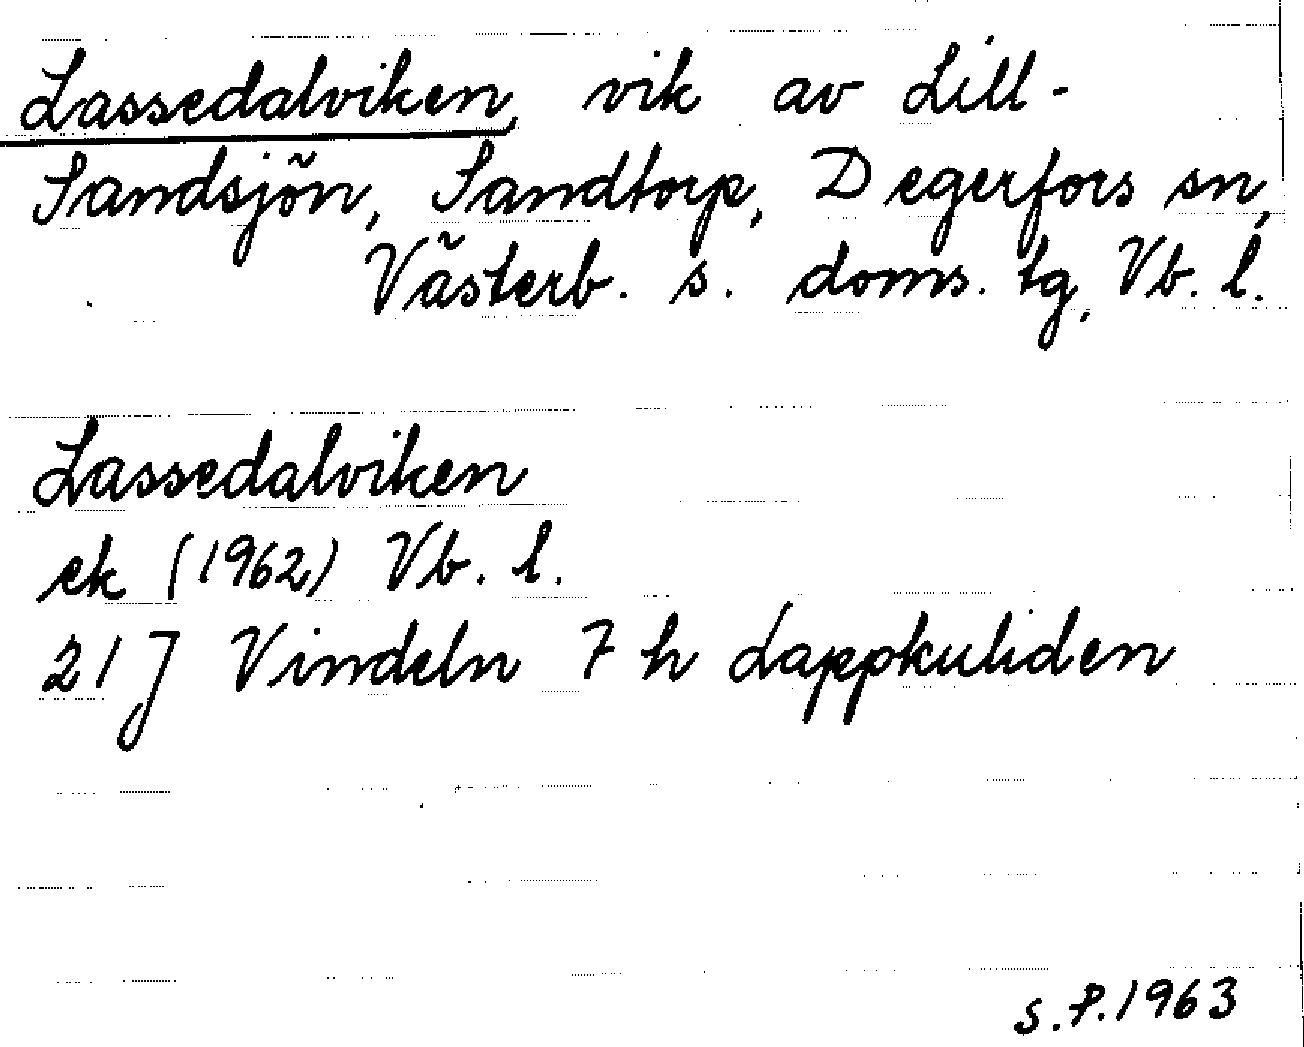 Lassedalviken, vik av Lill-
Sandsjön, Sandtorp, Degerfors sn,
Västerb. s. doms. tg, Vb. l.
Lassedalviken
ek (1962) Vb. l.
21 J Vindeln 7 h Lappkuliden
S.P. 1963